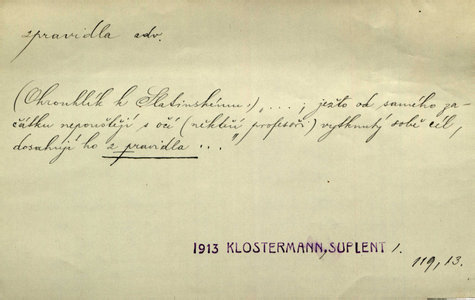 zpravidla adv.
(Ohrouhlík k Slatinskému:) „ ...., ježto od samého za-
čátku nepouštějí s očí (někteří profesoři) vytknutý sobě cíl,
dosahují ho z pravidla ..."
1913 KLOSTERMANN, SUPLENT 1.
119, 13.